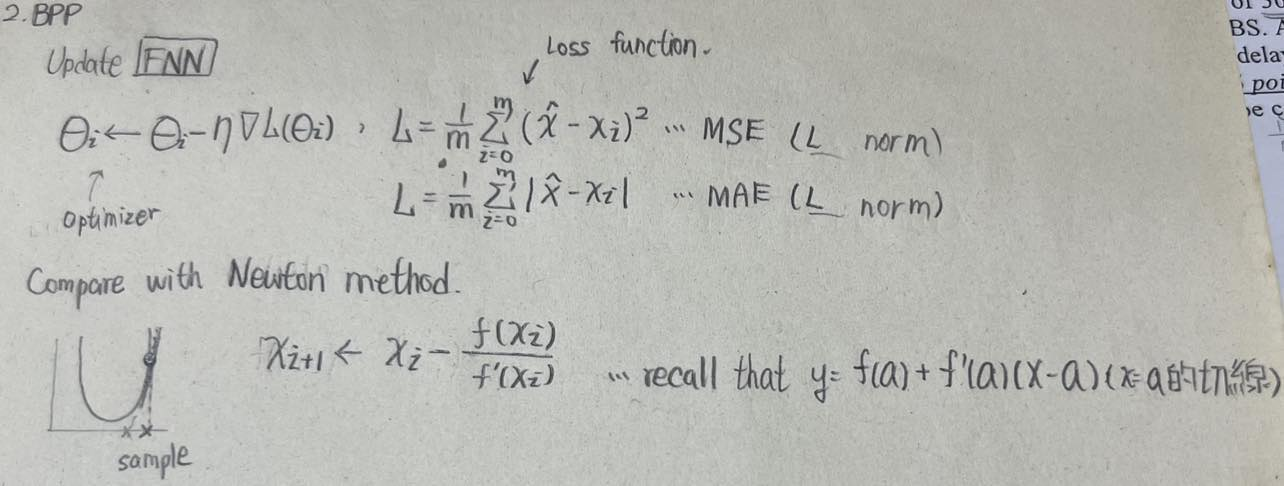 2. BPP
Update FNN
Loss function.
θi ← θi - η∇L(θi) , L = 1/m Σ_{i=0}^{m} (x̂ - xi)² … MSE (L norm)
L = 1/m Σ_{i=0}^{m} |x̂ - xi| … MAE (L norm)
optimizer
Compare with Newton method.
xi+1 ← xi - f(xi)/f'(xi) … recall that y = f(a) + f'(a)(x-a) (x=a的切線)
sample
BS.
dela
poi